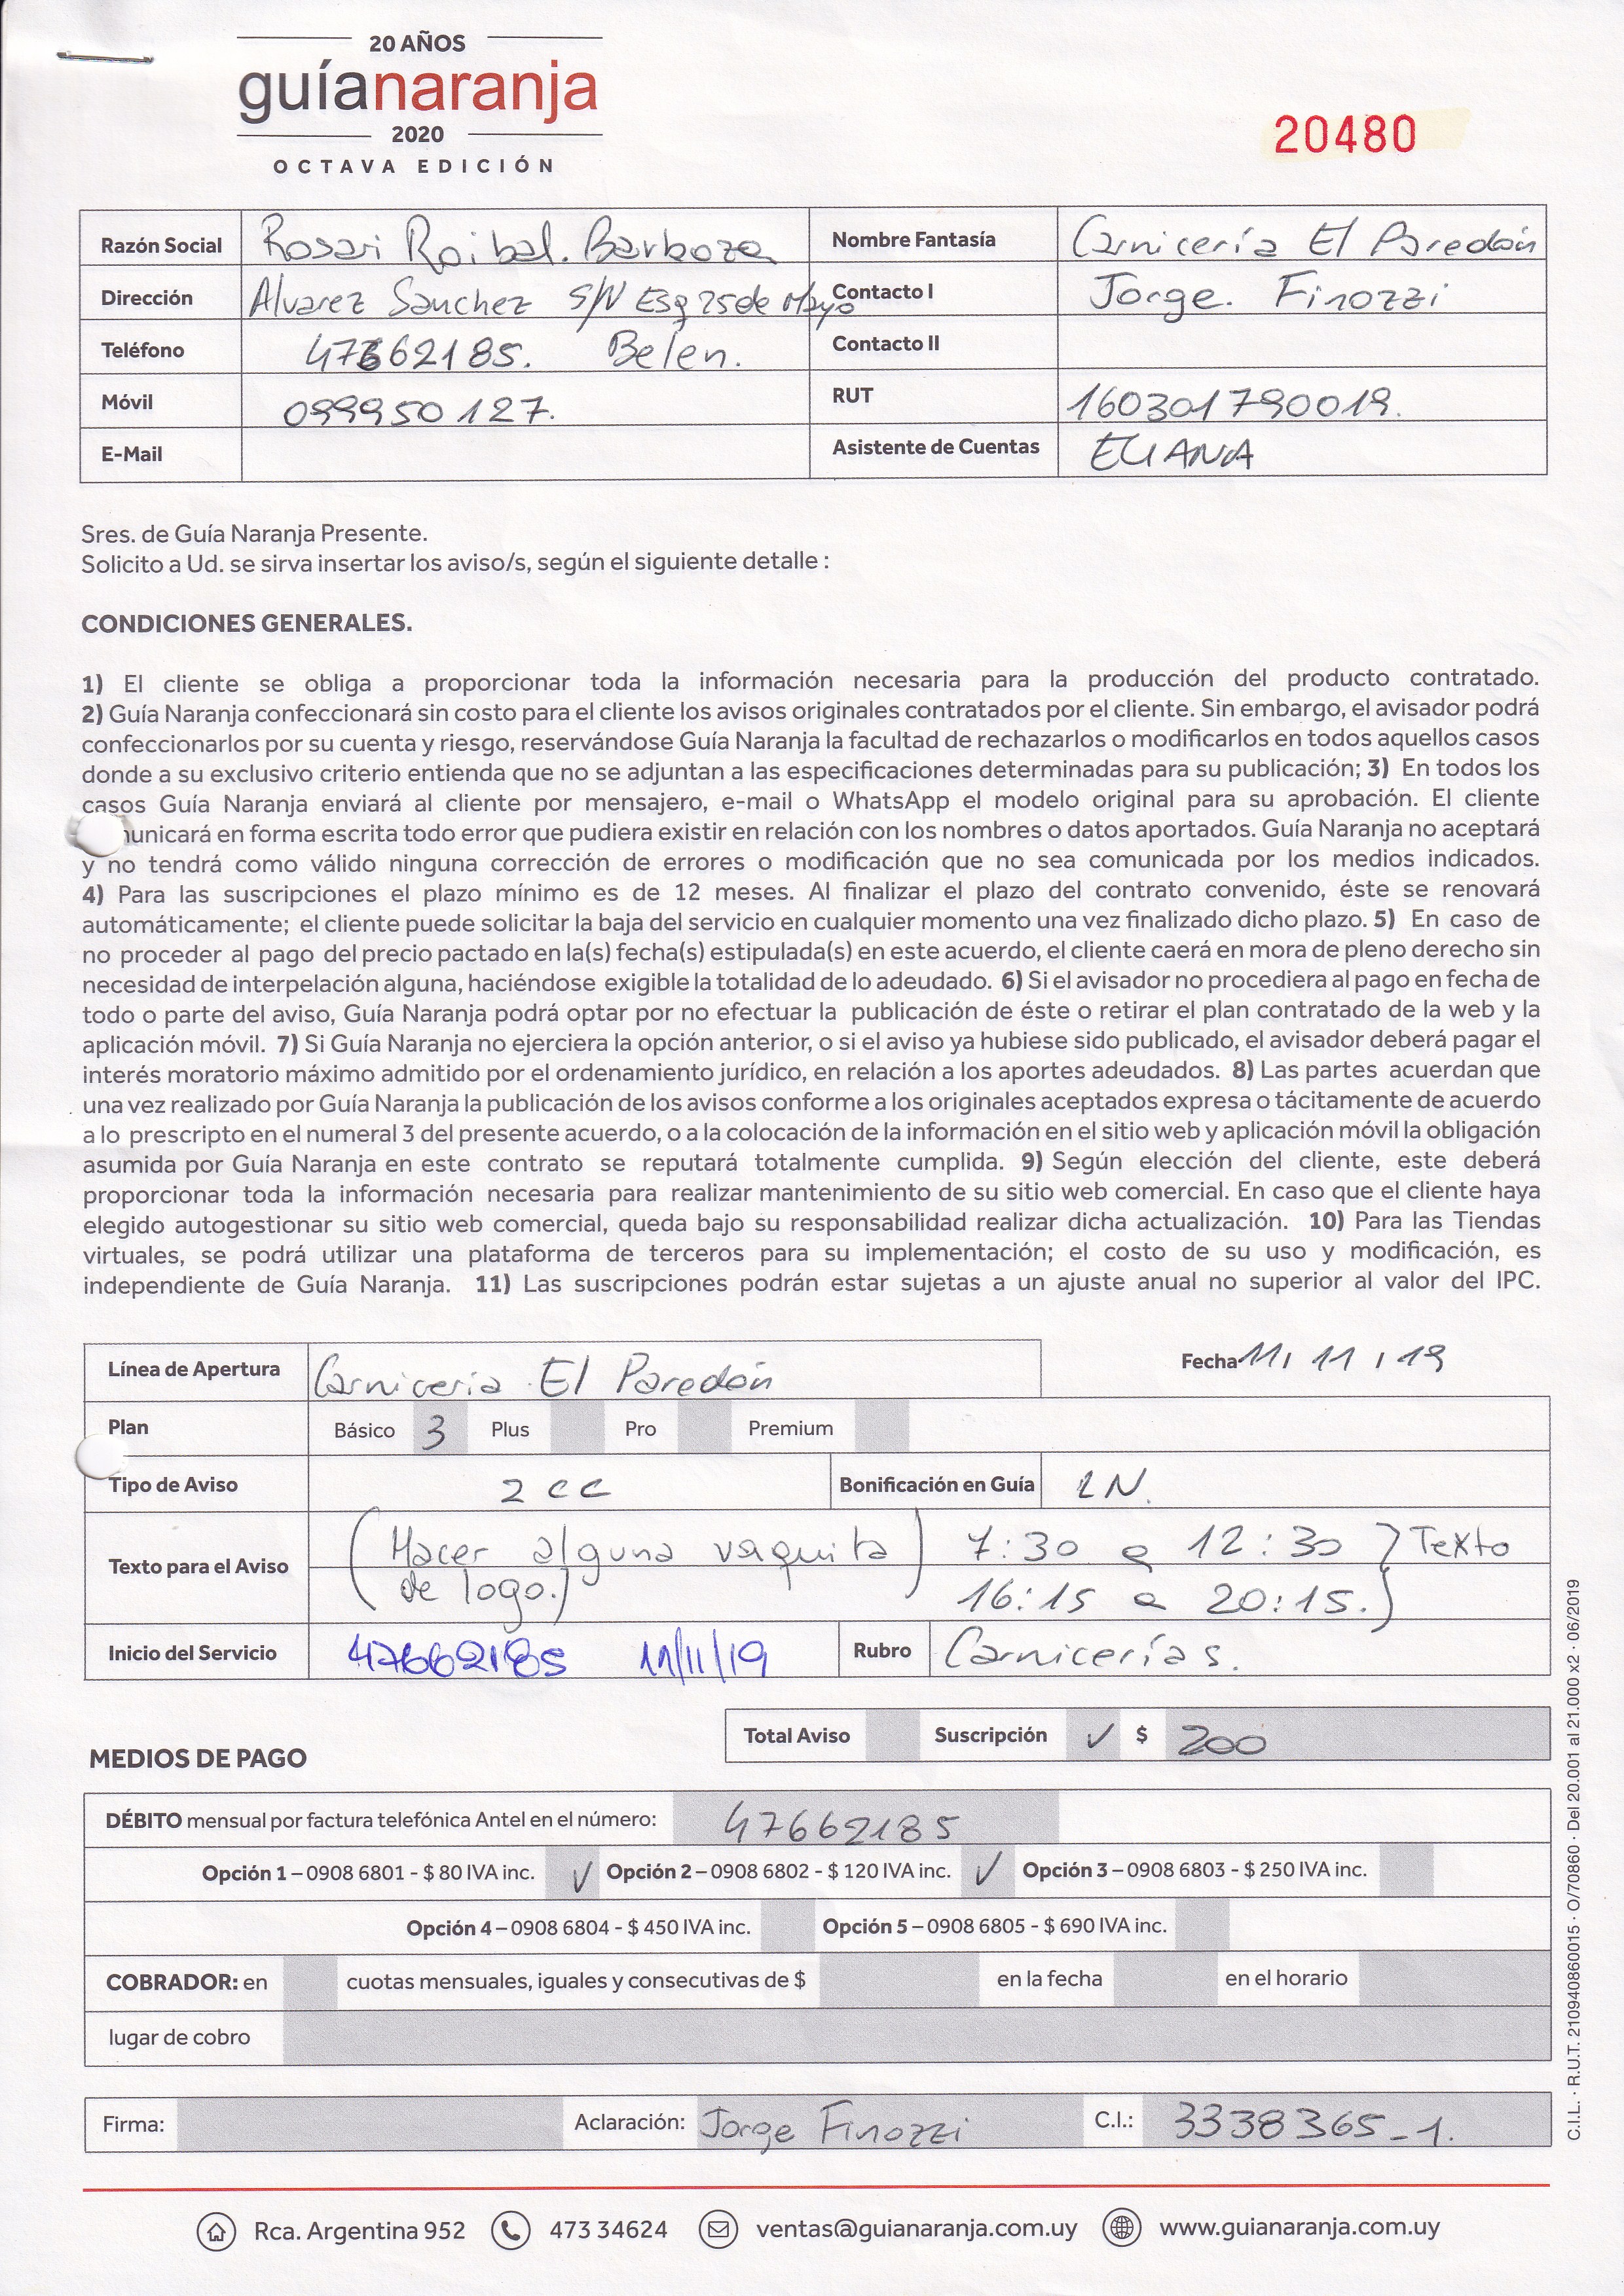 20 AÑOS
guíanaranja
2020
OCTAVA EDICIÓN
20480
Razón Social Rosari Roibal. Barboza Nombre Fantasía Carnicería El Paredón
Dirección Alvarez Sanchez S/N Esq 25 de Mayo Contacto I Jorge. Finozzi
Teléfono 47662185. Belen. Contacto II
Móvil 099950127. RUT 160301790019.
E-Mail Asistente de Cuentas ELIANA
Sres. de Guía Naranja Presente.
Solicito a Ud. se sirva insertar los aviso/s, según el siguiente detalle :
CONDICIONES GENERALES.
1) El cliente se obliga a proporcionar toda la información necesaria para la producción del producto contratado.
2) Guía Naranja confeccionará sin costo para el cliente los avisos originales contratados por el cliente. Sin embargo, el avisador podrá
confeccionarlos por su cuenta y riesgo, reservándose Guía Naranja la facultad de rechazarlos o modificarlos en todos aquellos casos
donde a su exclusivo criterio entienda que no se adjuntan a las especificaciones determinadas para su publicación; 3) En todos los
casos Guía Naranja enviará al cliente por mensajero, e-mail o WhatsApp el modelo original para su aprobación. El cliente
unicará en forma escrita todo error que pudiera existir en relación con los nombres o datos aportados. Guía Naranja no aceptará
y no tendrá como válido ninguna corrección de errores o modificación que no sea comunicada por los medios indicados.
4) Para las suscripciones el plazo mínimo es de 12 meses. Al finalizar el plazo del contrato convenido, éste se renovará
automáticamente; el cliente puede solicitar la baja del servicio en cualquier momento una vez finalizado dicho plazo. 5) En caso de
no proceder al pago del precio pactado en la(s) fecha(s) estipulada(s) en este acuerdo, el cliente caerá en mora de pleno derecho sin
necesidad de interpelación alguna, haciéndose exigible la totalidad de lo adeudado. 6) Si el avisador no procediera al pago en fecha de
todo o parte del aviso, Guía Naranja podrá optar por no efectuar la publicación de éste o retirar el plan contratado de la web y la
aplicación móvil. 7) Si Guía Naranja no ejerciera la opción anterior, o si el aviso ya hubiese sido publicado, el avisador deberá pagar el
interés moratorio máximo admitido por el ordenamiento jurídico, en relación a los aportes adeudados. 8) Las partes acuerdan que
una vez realizado por Guía Naranja la publicación de los avisos conforme a los originales aceptados expresa o tácitamente de acuerdo
a lo prescripto en el numeral 3 del presente acuerdo, o a la colocación de la información en el sitio web y aplicación móvil la obligación
asumida por Guía Naranja en este contrato se reputará totalmente cumplida. 9) Según elección del cliente, este deberá
proporcionar toda la información necesaria para realizar mantenimiento de su sitio web comercial. En caso que el cliente haya
elegido autogestionar su sitio web comercial, queda bajo su responsabilidad realizar dicha actualización. 10) Para las Tiendas
virtuales, se podrá utilizar una plataforma de terceros para su implementación; el costo de su uso y modificación, es
independiente de Guía Naranja. 11) Las suscripciones podrán estar sujetas a un ajuste anual no superior al valor del IPC.
Línea de Apertura Carnicería El Paredón Fecha 11/11/19
Plan Básico 3 Plus Pro Premium
Tipo de Aviso 2 CC Bonificación en Guía LN.
Texto para el Aviso (Hacer alguna vaquita) 7:30 a 12:30 } Texto
de logo.) 16:15 a 20:15.}
Inicio del Servicio 47662185 11/11/19 Rubro Carnicerías.
Total Aviso Suscripción ✓ $ 200
MEDIOS DE PAGO
DÉBITO mensual por factura telefónica Antel en el número: 47662185
Opción 1 – 0908 6801 - $ 80 IVA inc. ✓ Opción 2 – 0908 6802 - $ 120 IVA inc. ✓ Opción 3 – 0908 6803 - $ 250 IVA inc.
Opción 4 – 0908 6804 - $ 450 IVA inc. Opción 5 – 0908 6805 - $ 690 IVA inc.
COBRADOR: en cuotas mensuales, iguales y consecutivas de $ en la fecha en el horario
lugar de cobro
Firma: Aclaración: Jorge Finozzi C.I.: 3338365-1.
Rca. Argentina 952 473 34624 ventas@guianaranja.com.uy www.guianaranja.com.uy
C.I.L. · R.U.T. 210940860015 · O/70860 · Del 20.001 al 21.000 x2 · 06/2019